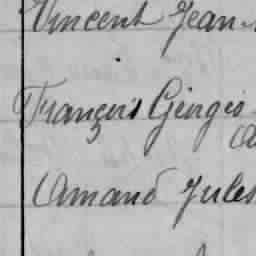 Vincent Jean
François Giorgio
Amand Jules